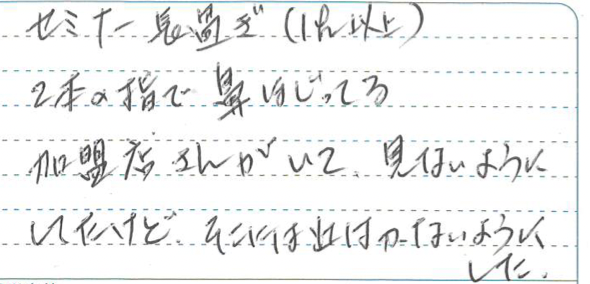 セミナー 長過ぎ(1h以上)
2本の指で鼻ほじってる
加盟店さんがいて、見ないように
してたけど、そこには近ばかないように
した.